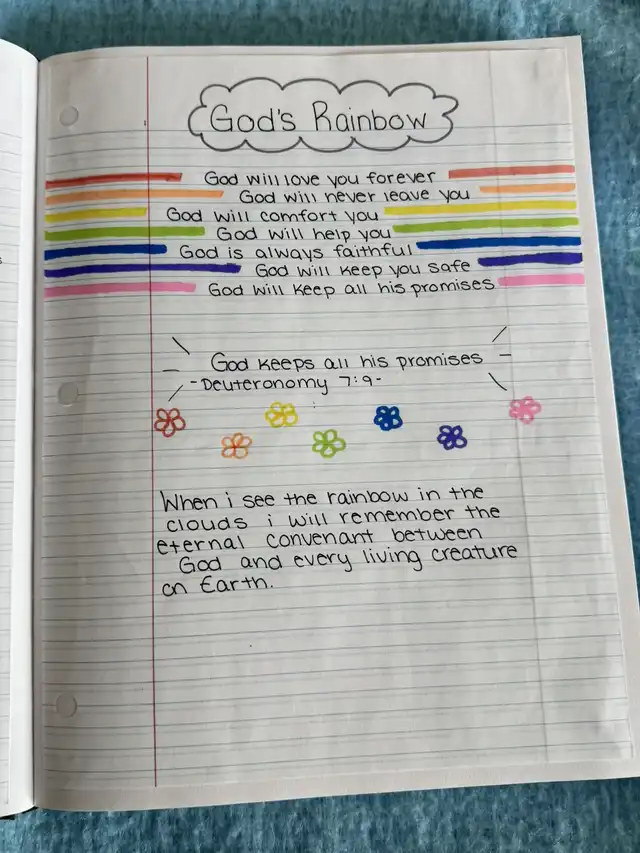 God's Rainbow
God will love you forever
God will never leave you
God will comfort you
God will help you
God is always faithful
God will keep you safe
God will keep all his promises
God keeps all his promises
-Deuteronomy 7:9-
When i see the rainbow in the
clouds i will remember the
eternal convenant between
God and every living creature
on Earth.